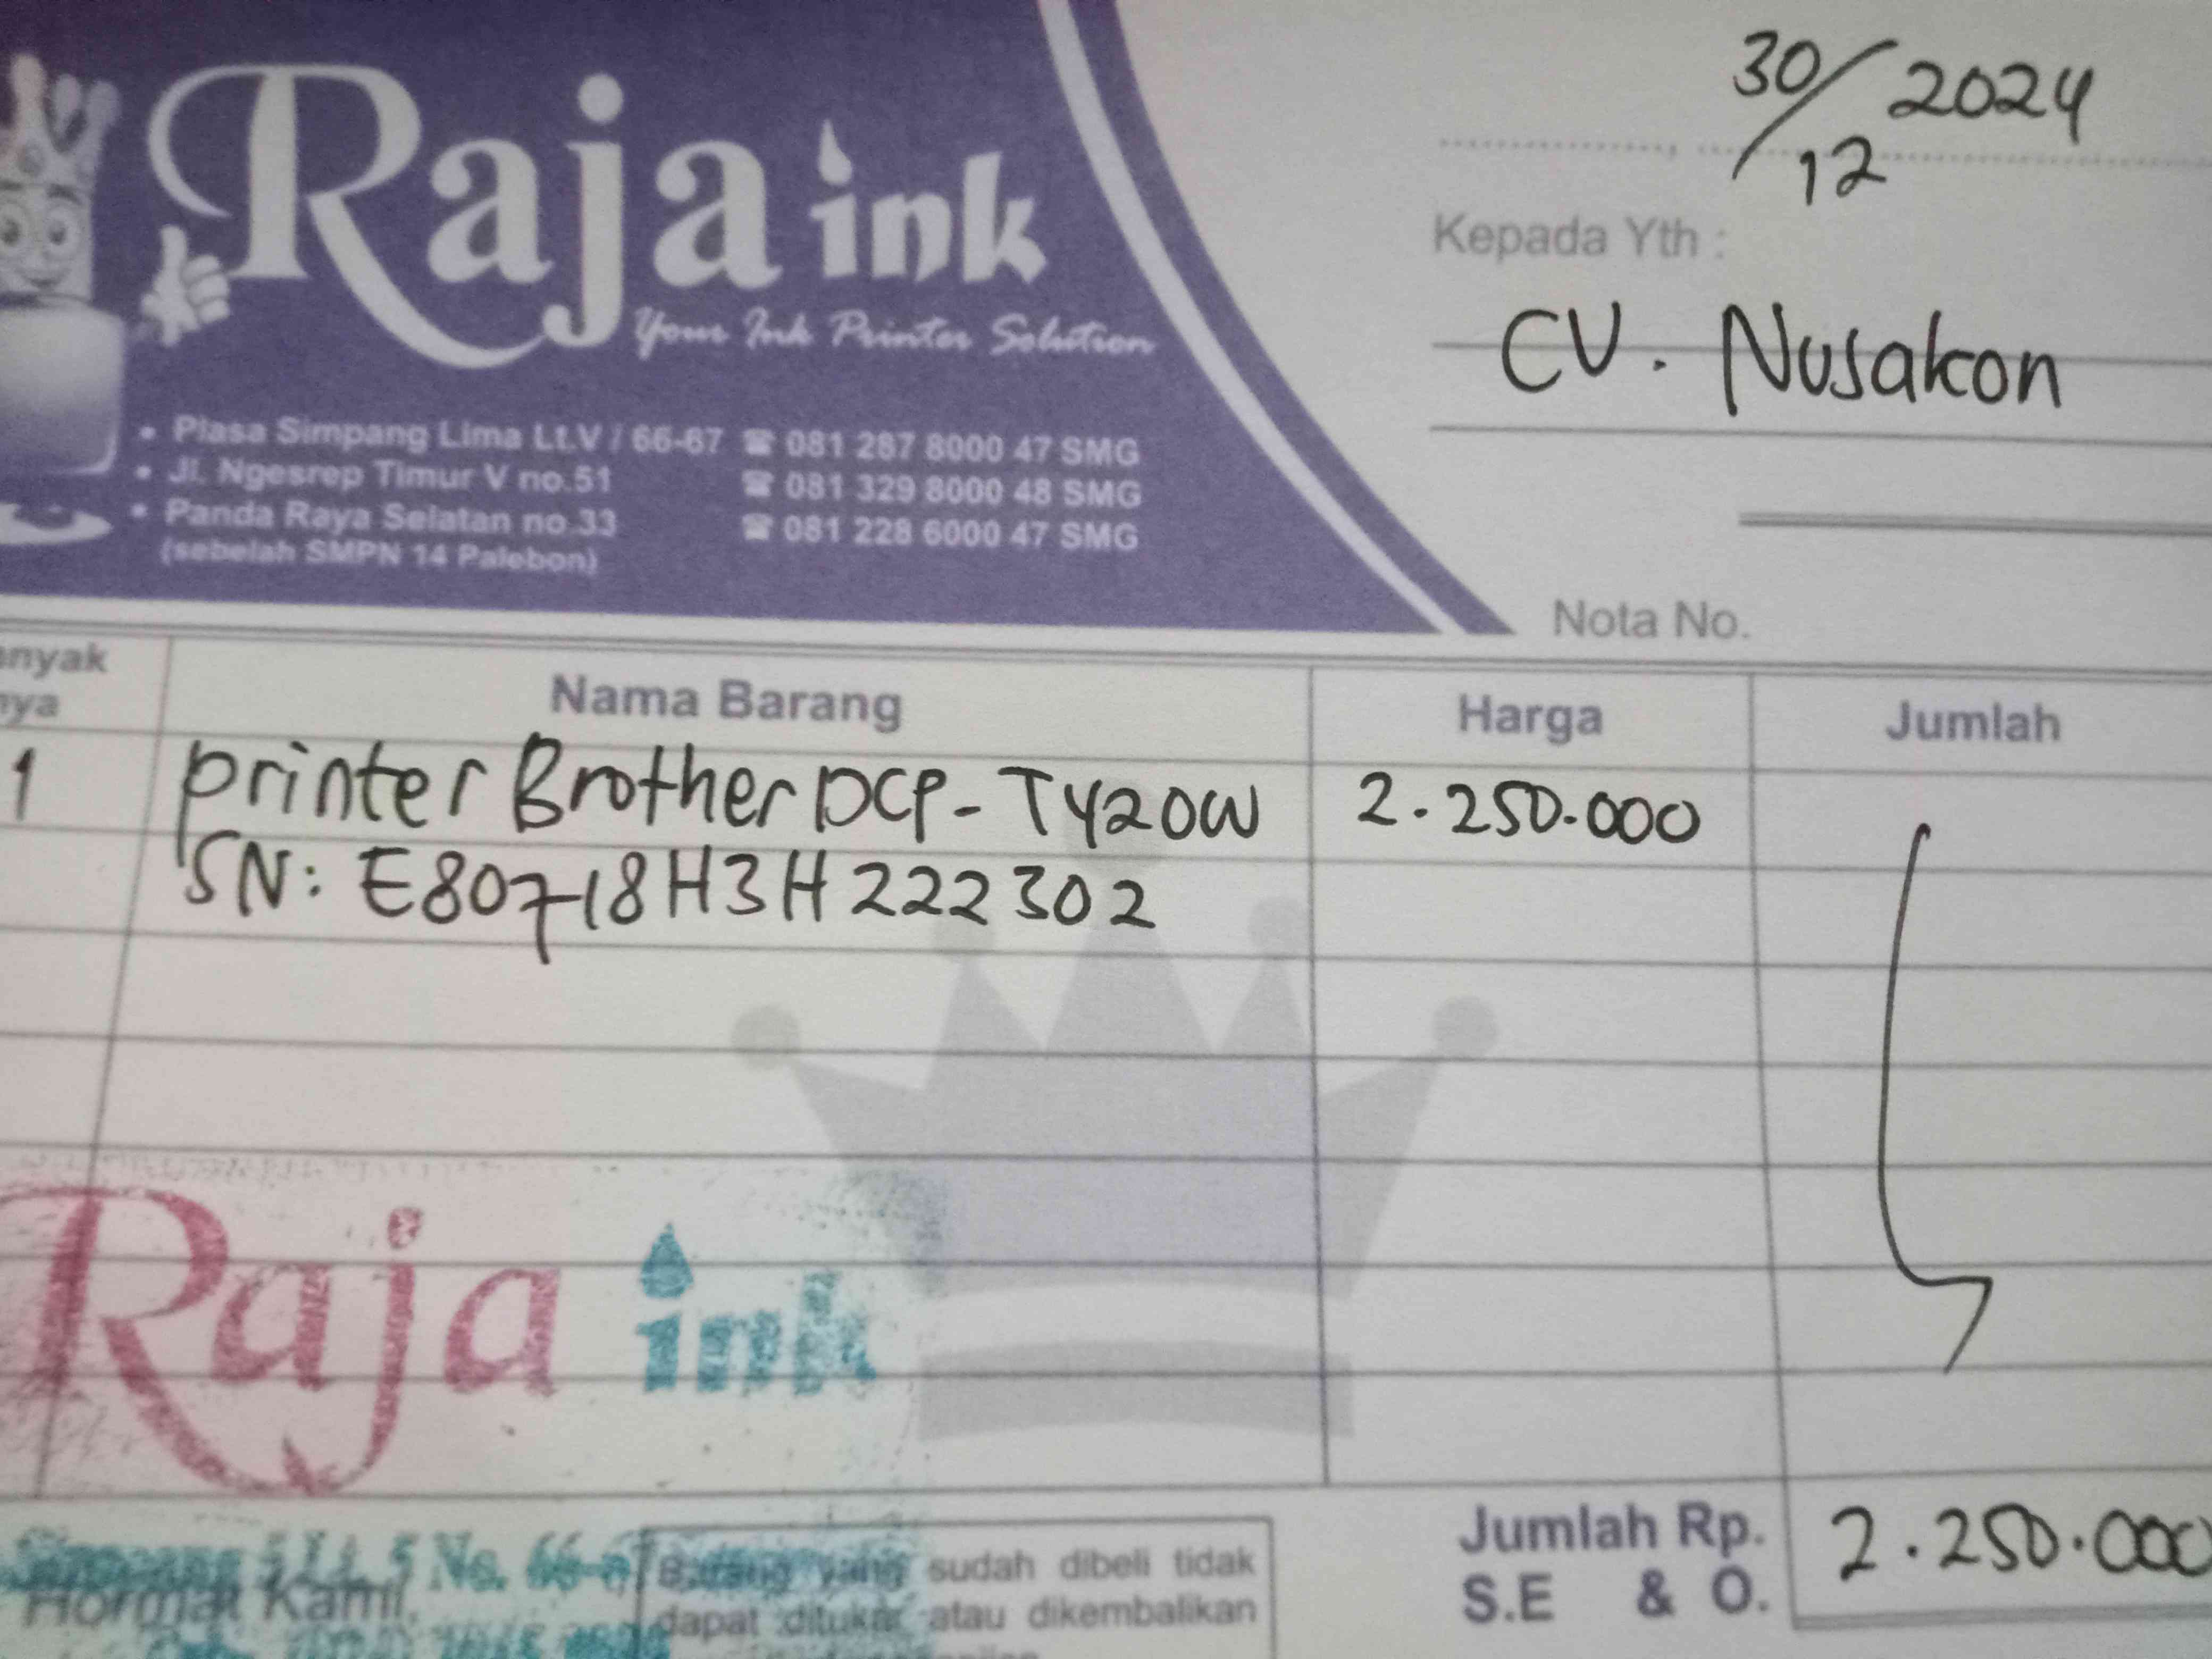 Raja ink
Your Ink Printer Solution
• Plasa Simpang Lima Lt.V / 66-67 ☎ 081 287 8000 47 SMG
• Jl. Ngesrep Timur V no.51 ☎ 081 329 8000 48 SMG
• Panda Raya Selatan no.33 ☎ 081 228 6000 47 SMG
(sebelah SMPN 14 Palebon)
30/12 2024
Kepada Yth :
CV. Nusakon
Nota No.
anyak
nya
Nama Barang Harga Jumlah
1 printer Brother DCP-T420W 2.250.000
SN: E80718H3H222302
Raja ink
Simpang 5 Lt. 5 No. 66-67
Hormat Kami,
Barang yang sudah dibeli tidak
dapat ditukar atau dikembalikan
Jumlah Rp. 2.250.000
S.E & O.